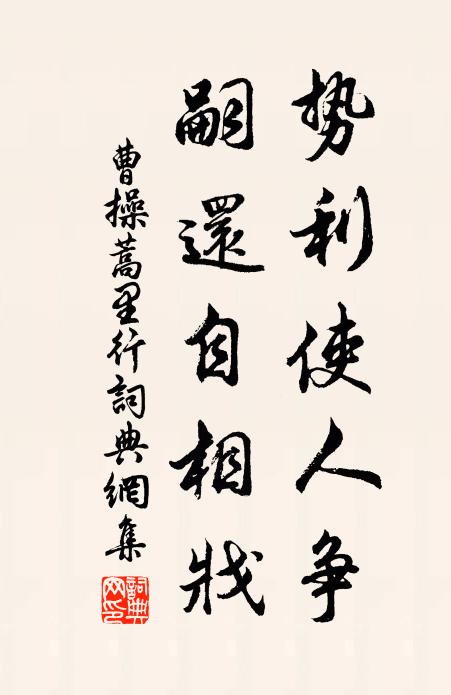 势利使人争
嗣還自相戕
曹操蒿里行詞典網集
詞典网印